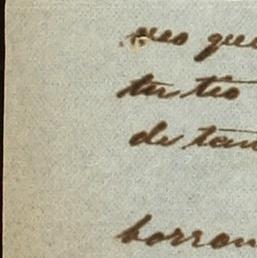 que
tu tio
de tan
borron